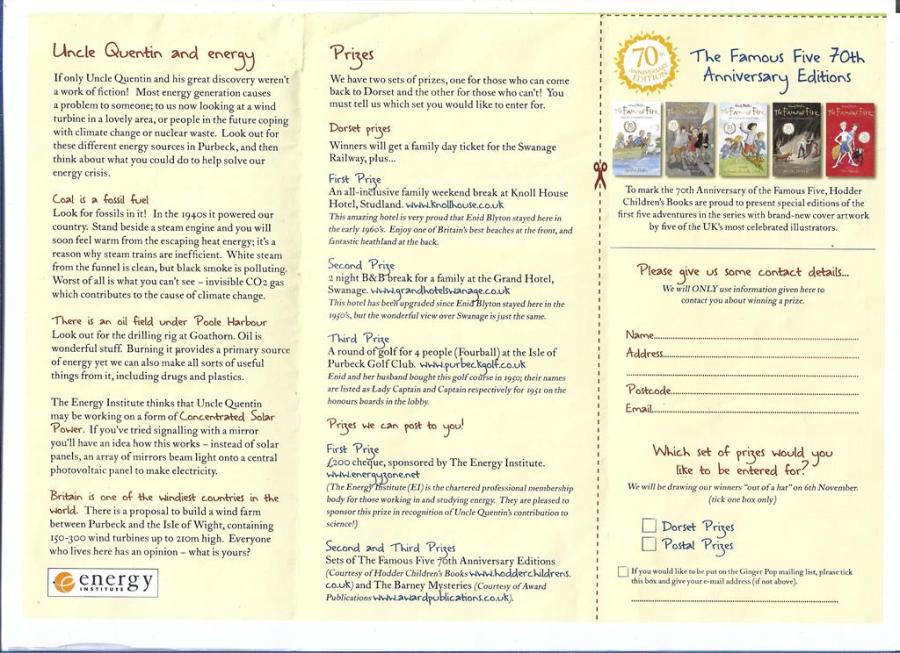 Uncle Quentin and energy
If only Uncle Quentin and his great discovery weren't
a work of fiction! Most energy generation causes
a problem to someone; to us now looking at a wind
turbine in a lovely area, or people in the future coping
with climate change or nuclear waste. Look out for
these different energy sources in Purbeck, and then
think about what you could do to help solve our
energy crisis.
Coal is a fossil fuel
Look for fossils in it! In the 1940s it powered our
country. Stand beside a steam engine and you will
soon feel warm from the escaping heat energy; it's a
reason why steam trains are inefficient. White steam
from the funnel is clean, but black smoke is polluting.
Worst of all is what you can't see – invisible CO2 gas
which contributes to the cause of climate change.
There is an oil field under Poole Harbour
Look out for the drilling rig at Goathorn. Oil is
wonderful stuff. Burning it provides a primary source
of energy yet we can also make all sorts of useful
things from it, including drugs and plastics.
The Energy Institute thinks that Uncle Quentin
may be working on a form of Concentrated Solar
Power. If you've tried signalling with a mirror
you'll have an idea how this works – instead of solar
panels, an array of mirrors beam light onto a central
photovoltaic panel to make electricity.
Britain is one of the windiest countries in the
world. There is a proposal to build a wind farm
between Purbeck and the Isle of Wight, containing
150-300 wind turbines up to 210m high. Everyone
who lives here has an opinion – what is yours?
energy
INSTITUTE
Prizes
We have two sets of prizes, one for those who can come
back to Dorset and the other for those who can't! You
must tell us which set you would like to enter for.
Dorset prizes
Winners will get a family day ticket for the Swanage
Railway, plus...
First Prize
An all-inclusive family weekend break at Knoll House
Hotel, Studland. www.knollhouse.co.uk
This amazing hotel is very proud that Enid Blyton stayed here in
the early 1960's. Enjoy one of Britain's best beaches at the front, and
fantastic heathland at the back.
Second Prize
2 night B&B break for a family at the Grand Hotel,
Swanage. www.grandhotelswanage.co.uk
This hotel has been upgraded since Enid Blyton stayed here in the
1950's, but the wonderful view over Swanage is just the same.
Third Prize
A round of golf for 4 people (Fourball) at the Isle of
Purbeck Golf Club. www.purbeckgolf.co.uk
Enid and her husband bought this golf course in 1950; their names
are listed as Lady Captain and Captain respectively for 1951 on the
honours boards in the lobby.
Prizes we can post to you!
First Prize
£200 cheque, sponsored by The Energy Institute.
www.energyzone.net
(The Energy Institute (EI) is the chartered professional membership
body for those working in and studying energy. They are pleased to
sponsor this prize in recognition of Uncle Quentin's contribution to
science!)
Second and Third Prizes
Sets of The Famous Five 70th Anniversary Editions
(Courtesy of Hodder Children's Books www.hodderchildrens.
co.uk) and The Barney Mysteries (Courtesy of Award
Publications www.awardpublications.co.uk).
70TH
ANNIVERSARY
EDITION
The Famous Five 70th
Anniversary Editions
Famous Five
Famous Five
Famous Five
Famous Five
Famous Five
To mark the 70th Anniversary of the Famous Five, Hodder
Children's Books are proud to present special editions of the
first five adventures in the series with brand-new cover artwork
by five of the UK's most celebrated illustrators.
Please give us some contact details...
We will ONLY use information given here to
contact you about winning a prize.
Name
Address
Postcode
Email
Which set of prizes would you
like to be entered for?
We will be drawing our winners "out of a hat" on 6th November.
(tick one box only)
Dorset Prizes
Postal Prizes
If you would like to be put on the Ginger Pop mailing list, please tick
this box and give your e-mail address (if not above).